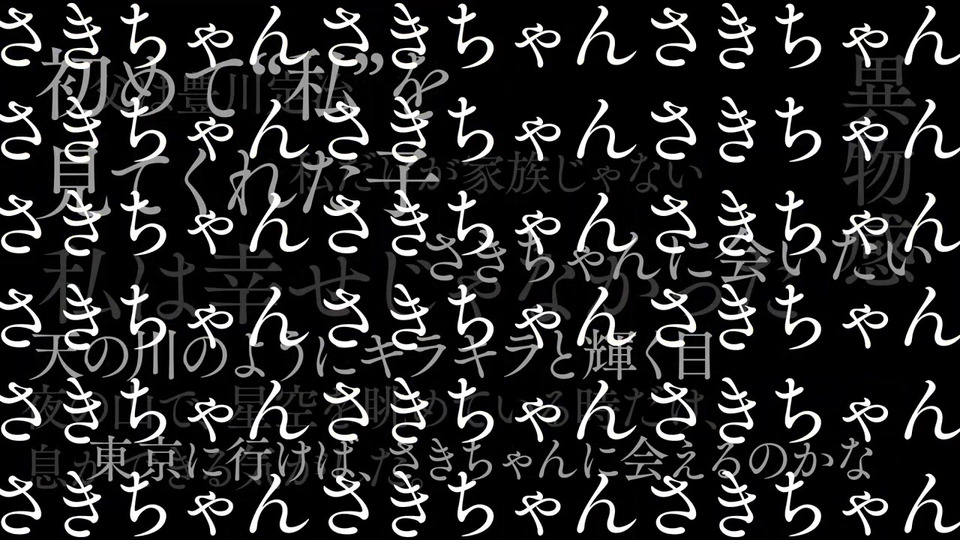 さきちゃんさきちゃんさきちゃん
初めて“私”を
異物感
父は豊川定治
さきちゃんさきちゃんさきちゃん
見てくれた子
私だけが家族じゃない
さきちゃんさきちゃんさきちゃん
さきちゃんに会いたい
私は幸せじゃなかった
さきちゃんさきちゃんさきちゃん
天の川のようにキラキラと輝く目
さきちゃんさきちゃんさきちゃん
夜の山で、星空を眺めている時だけ、
東京に行けば、さきちゃんに会えるのかな
息ができる
さきちゃんさきちゃんさきちゃん